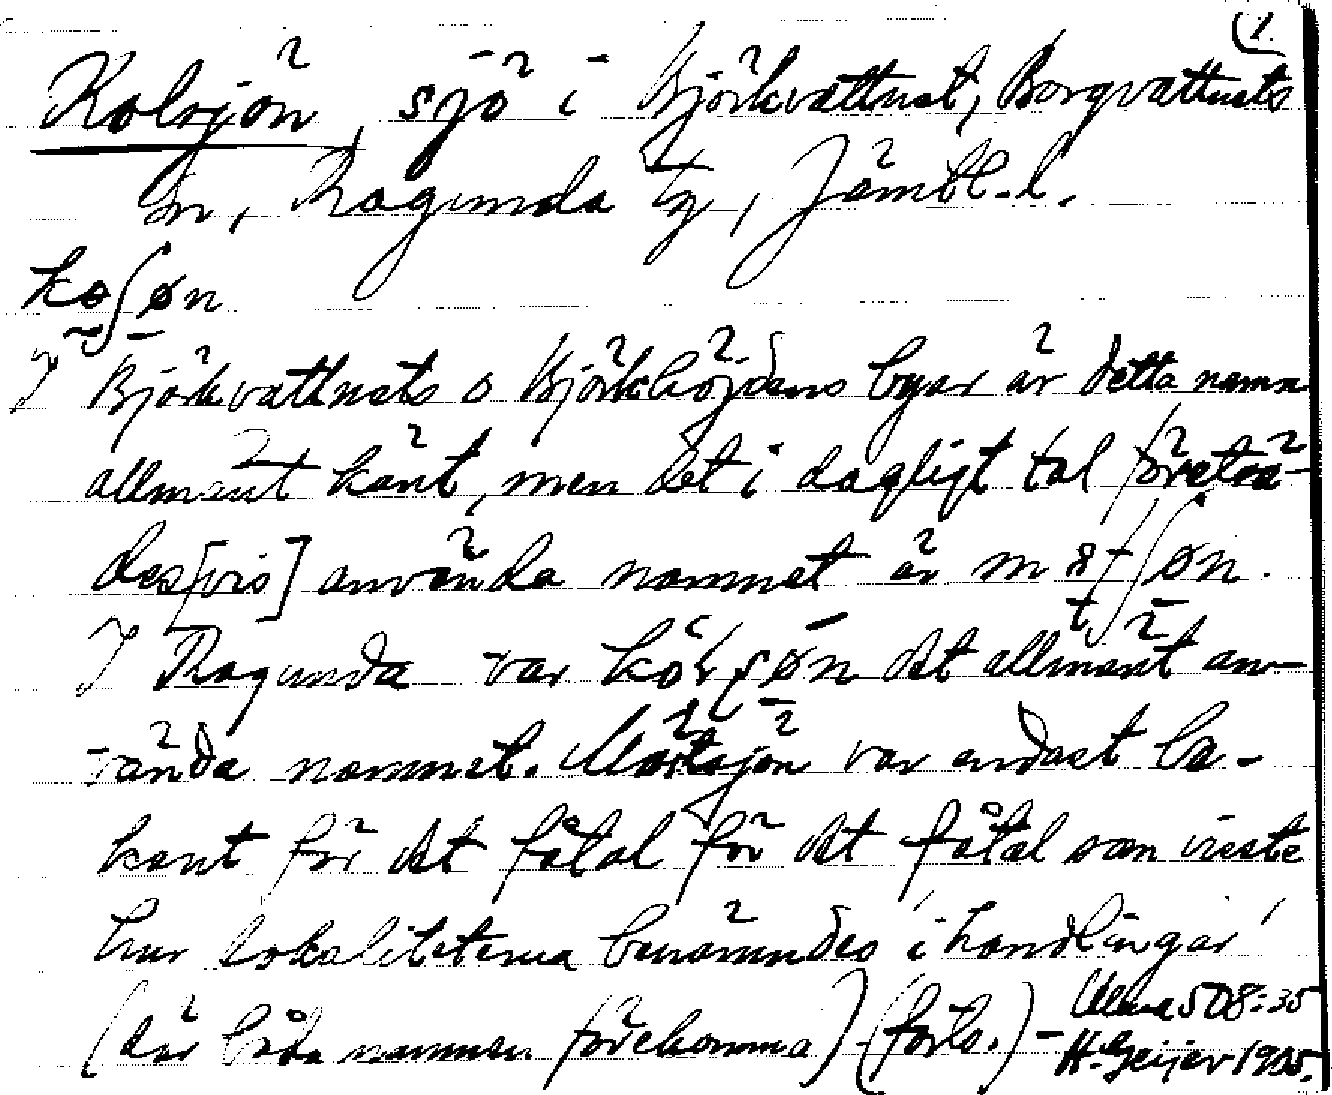 (1.
Kolsjön, sjö i Björkvattnet, Borgvattnets
sn, Ragunda tg, Jämtl. l.
koʃøn
I Björkvattnets o Björkhöjdens byar är detta namn
allmänt känt, men det i dagligt tal företrä-
des[vis] använda namnet är
I Ragunda var det allmänt an-
vända namnet. Mörtsjön var endast be-
kant för det fåtal för det fåtal som visste
hur lokaliteterna benämndes i handlingar
(där båda namnen förekomma) (forts.) – Ulma 508:35
H. Geijer 1905.